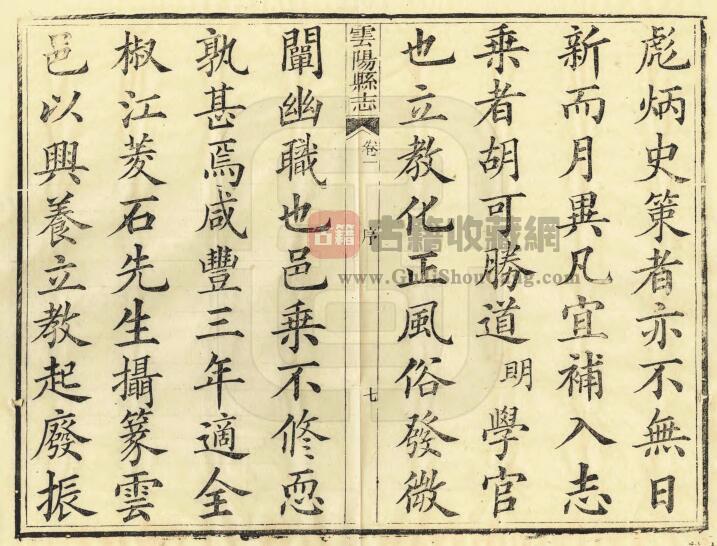 彪炳史策者亦不無日
新而月異凡宜補入志
乗者胡可勝道明學官
也立教化正風俗發微
雲陽縣志 卷一 序 七
闡幽職也邑乗不修恧
孰甚焉咸豐三年適全
椒江菱石先生攝篆雲
邑以興養立教起廢振
古籍 古籍收藏網
www.GuJiShouCang.com